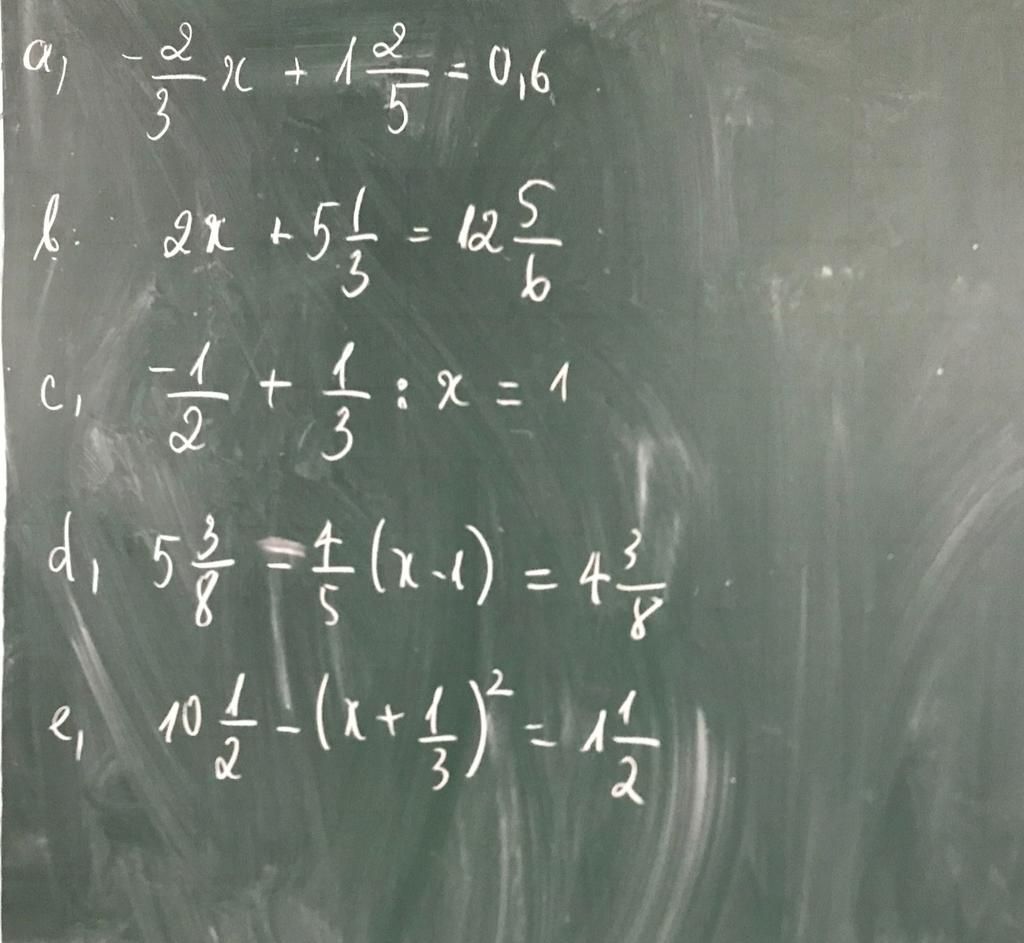 a, -2/3 x + 1 2/5 = 0,6
b. 2x + 5 1/3 = 12 5/6
c, -1/2 + 1/3 : x = 1
d, 5 3/8 - 4/5 (x-1) = 4 3/8
e, 10 1/2 - (x + 1/3)² = 1 1/2